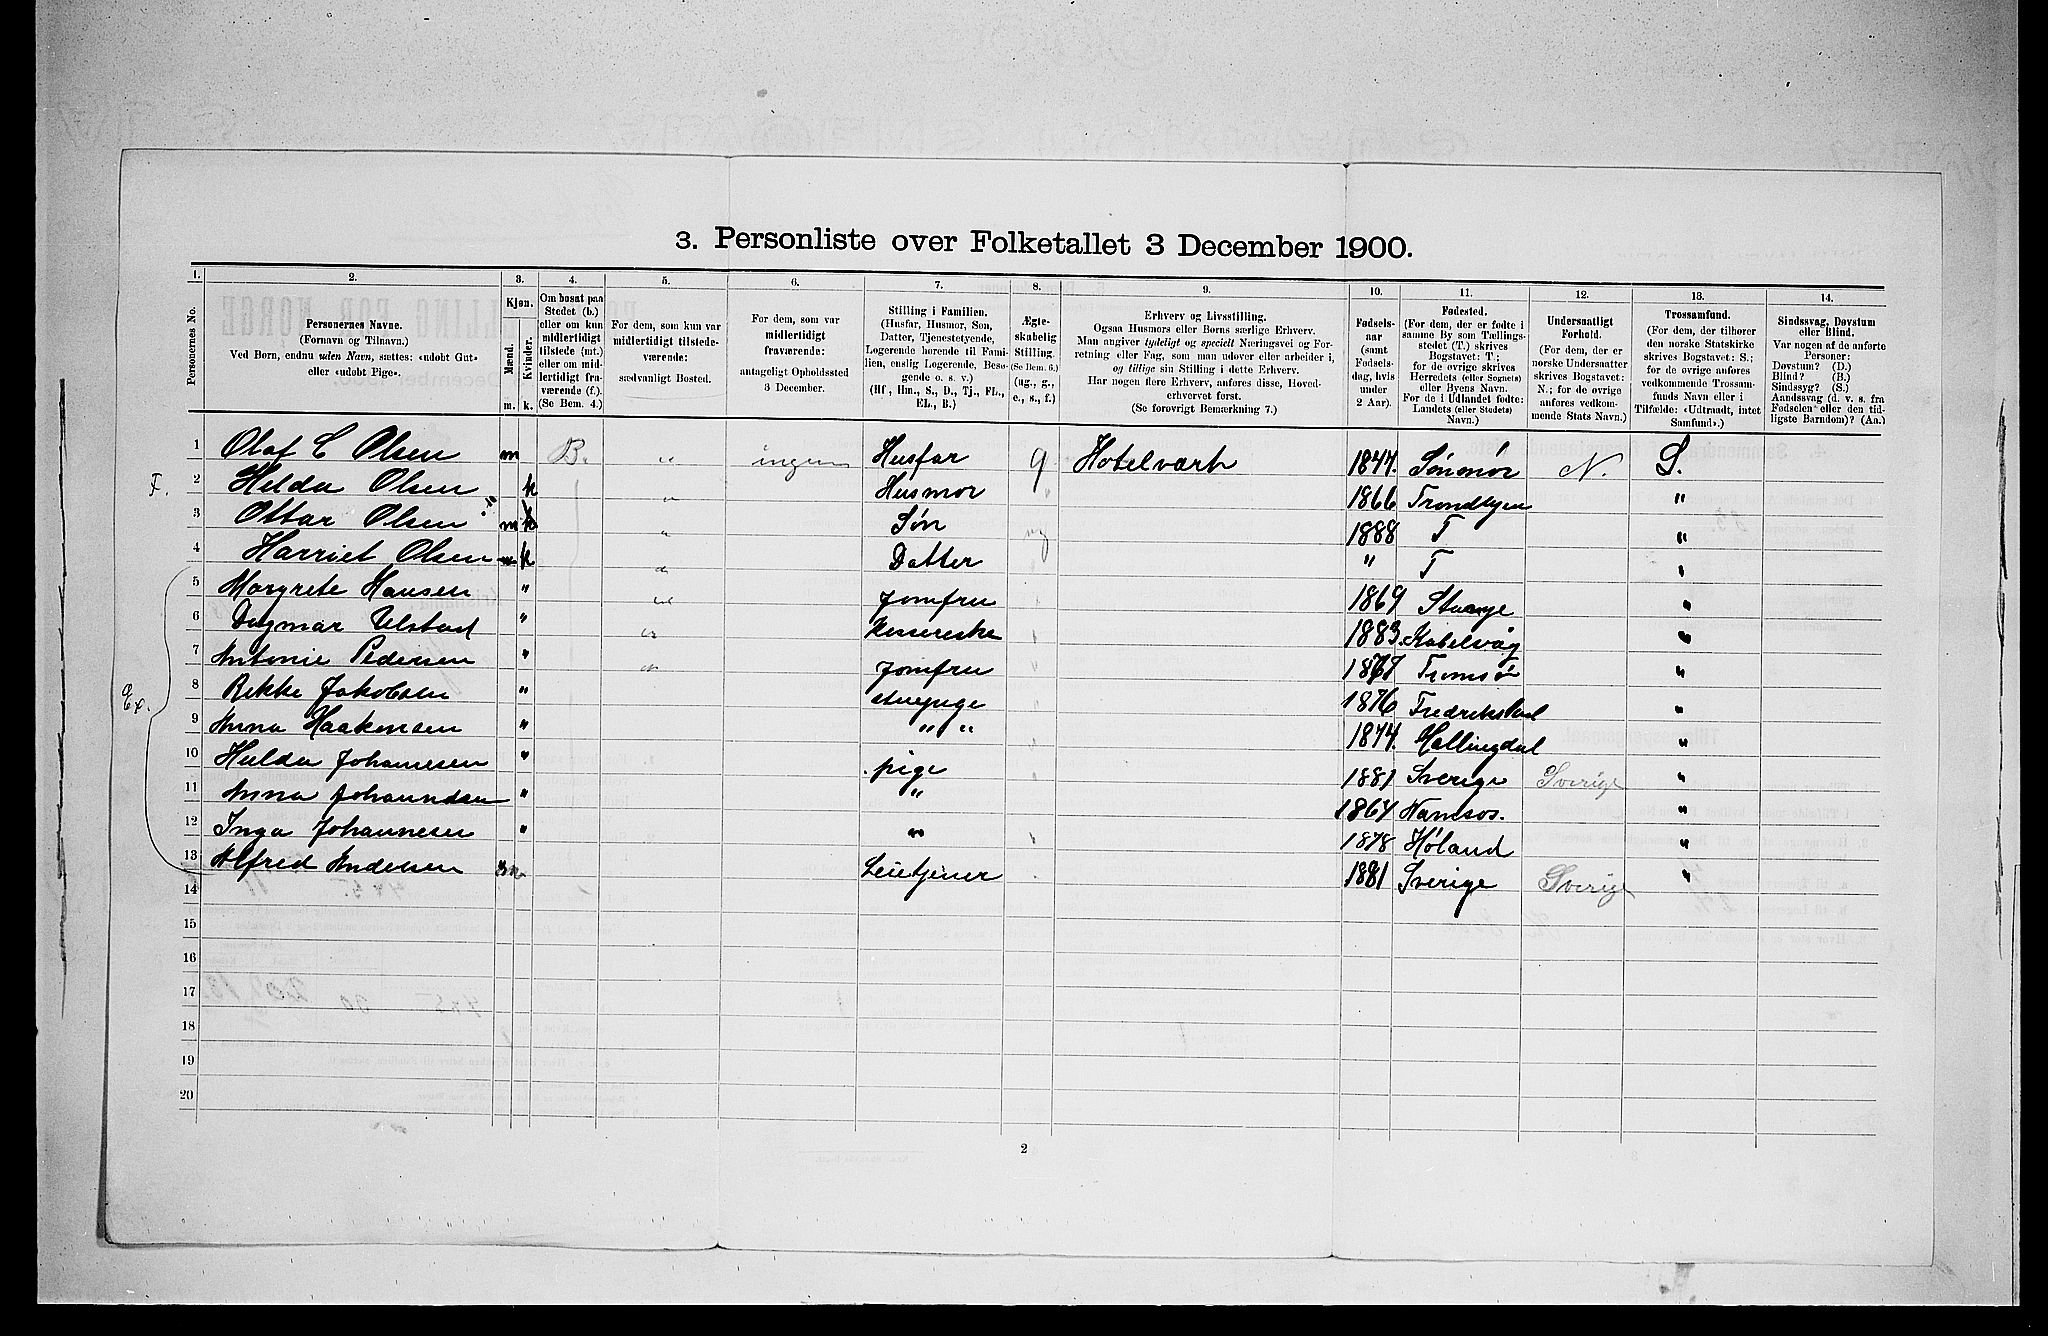 3. Personliste over Folketallet 3 December 1900.
1. 2. 3. 4. 5. 6. 7. 8. 9. 10. 11. 12. 13. 14.
Personernes No.
Personernes Navne.
(Fornavn og Tilnavn.)
Ved Børn, endnu uden Navn, sættes: «udobt Gut»
eller «udobt Pige».
Kjøn.
Mænd. Kvinder.
m. k.
Om bosat paa
Stedet (b.)
eller om kun
midlertidigt
tilstede (mt.)
eller om mid-
lertidigt fra-
værende (f.).
(Se Bem. 4.)
For dem, som kun var
midlertidigt tilstede-
værende:
sædvanligt Bosted.
For dem, som var
midlertidigt
fraværende:
antageligt Opholdssted
3 December.
Stilling i Familien.
(Husfar, Husmor, Søn,
Datter, Tjenestetyende,
Logerende hørende til Fami-
lien, enslig Logerende, Besø-
gende o. s. v.)
(Hf, Hm., S., D., Tj., FL.,
EL., B.)
Ægte-
skabelig
Stilling.
(Se Bem. 6.)
(ug., g.,
e., s., f.)
Erhverv og Livsstilling.
Ogsaa Husmors eller Børns særlige Erhverv.
Man angiver tydeligt og specielt Næringsvei og For-
retning eller Fag, som man udøver eller arbeider i,
og tillige sin Stilling i dette Erhverv.
Har nogen flere Erhverv, anføres disse, Hoved-
erhvervet først.
(Se forøvrigt Bemærkning 7.)
Fødsels-
aar
(samt
Fødsels-
dag, hvis
under
2 Aar).
Fødested.
(For dem, der er fødte i
samme By som Tællings-
stedet (T.) skrives
Bogstavet: T.;
for de øvrige skrives
Herredets (eller Sognets)
eller Byens Navn.
For de i Udlandet fødte:
Landets (eller Stedets)
Navn.)
Undersaatligt
Forhold.
(For dem, der er
norske Undersaatter
skrives Bogstavet:
N.; for de øvrige
anføres vedkom-
mende Stats Navn.)
Trossamfund.
(For dem, der tilhører
den norske Statskirke
skrives Bogstavet: S.;
for de øvrige anføres
vedkommende Trossam-
funds Navn eller i
Tilfælde: «Udtraadt, intet
Samfund».)
Sindssvag, Døvstum
eller Blind.
Var nogen af de anførte
Personer:
Døvstum? (D.)
Blind? (B.)
Sindssyg? (S.)
Aandssvag (d. v. s. fra
Fødselen eller den tid-
ligste Barndom)? (Aa.)
1 Olaf C Olsen m B. " ingen Husfar g Hotelvært 1847. Sønmør N. S.
F. 2 Helda Olsen k " Husmor " 1866 Trondhjem "
3 Ottar Olsen m k " Søn ug 1888 T "
4 Harriet Olsen m k " Datter " " T "
Ex. 5 Margrete Hansen " " Jomfru " 1869 Stange "
6 Dagmar Ulstad " " 1883. Kabelvåg "
7 Antonie Pedersen " " Jomfru " 1867 Tromsø "
8 Rikke Jakobsen " stuepige " 1876 Fredrikstad "
9 Anna Haakensen " " " " 1874. Hallingdal "
10 Hulda Johannesen " pige " 1881 Sverige Sverige "
11 Anna " " 1864 Namsos. "
12 Inga Johannesen " " " 1878 Høland "
13 Alfred Andersen m 1881 Sverige Sverige "
14
15
16
17
18
19
20
2